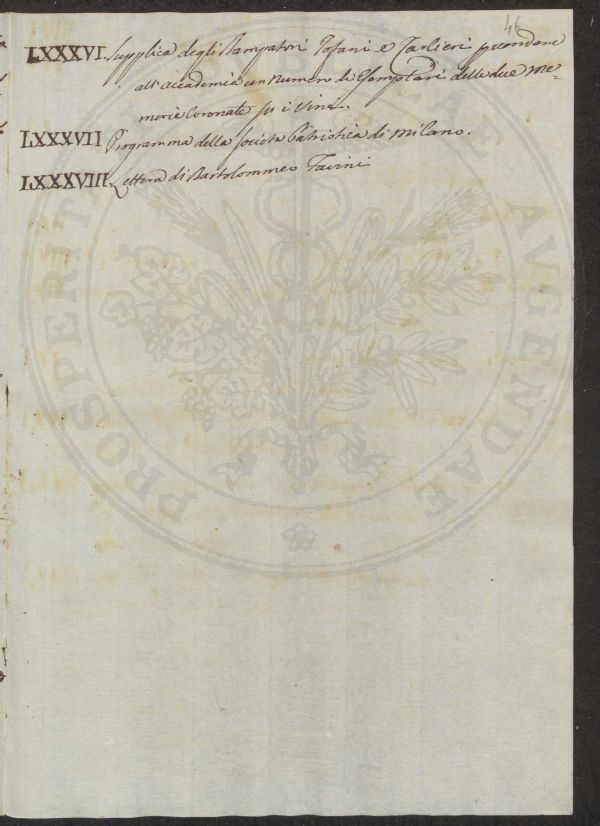 46
LXXXVI. Supplica degli Stampatori Tofani e Carlieri per dare
all'Accademia un numero di Esemplari delle due Me-
morie Coronate su i Vini.
LXXXVII Programma della Società Patriotica di Milano.
LXXXVIII. Lettera di Bartolommeo Tavini
PROSPERITATI AUGENDAE